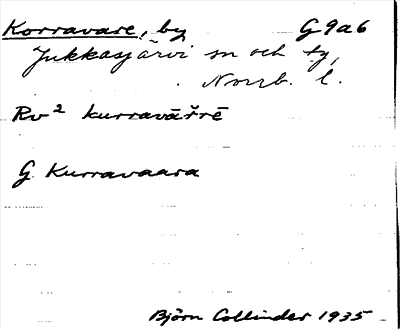 Korravare, by G9a6
Jukkasjärvi sn och tg,
Norrb. l.
Rv² kurravāřrē
G. Kurravaara
Björn Collinder 1935